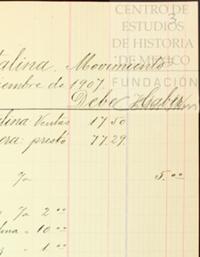 CENTRO DE
ESTUDIOS
DE HISTORIA
DE MEXICO
FUNDACIÓN
3
talina. Movimiento
iembre de 1907.
Debe Haber
lina Ventas 17 50
era: presto 77.29.
Ja 5.00
Ja 2 00
lina " 10 00
" 1 00